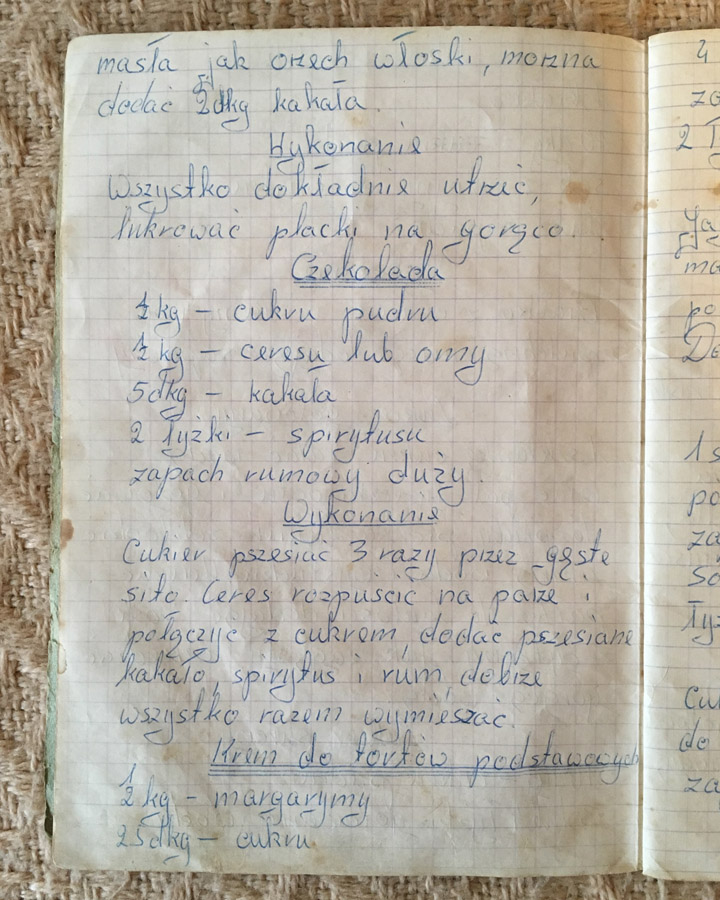 masła jak orzech włoski, można
dodać 2dkg kakała.
Wykonanie
Wszystko dokładnie utrzeć,
lukrować placki na gorąco.
Czekolada
1kg – cukru pudru
1kg – ceresu lub omy
5dkg – kakała
2 łyżki – spirytusu
zapach rumowy duży.
Wykonanie
Cukier pszesiać 3 razy przez gęste
sito. Ceres rozpuścić na parze i
połączyć z cukrem, dodać pszesiane
kakało, spirytus i rum, dobrze
wszystko razem wymieszać.
Krem do tortów podstawowych
1/2 kg – margarymy
25dkg – cukru
4
2